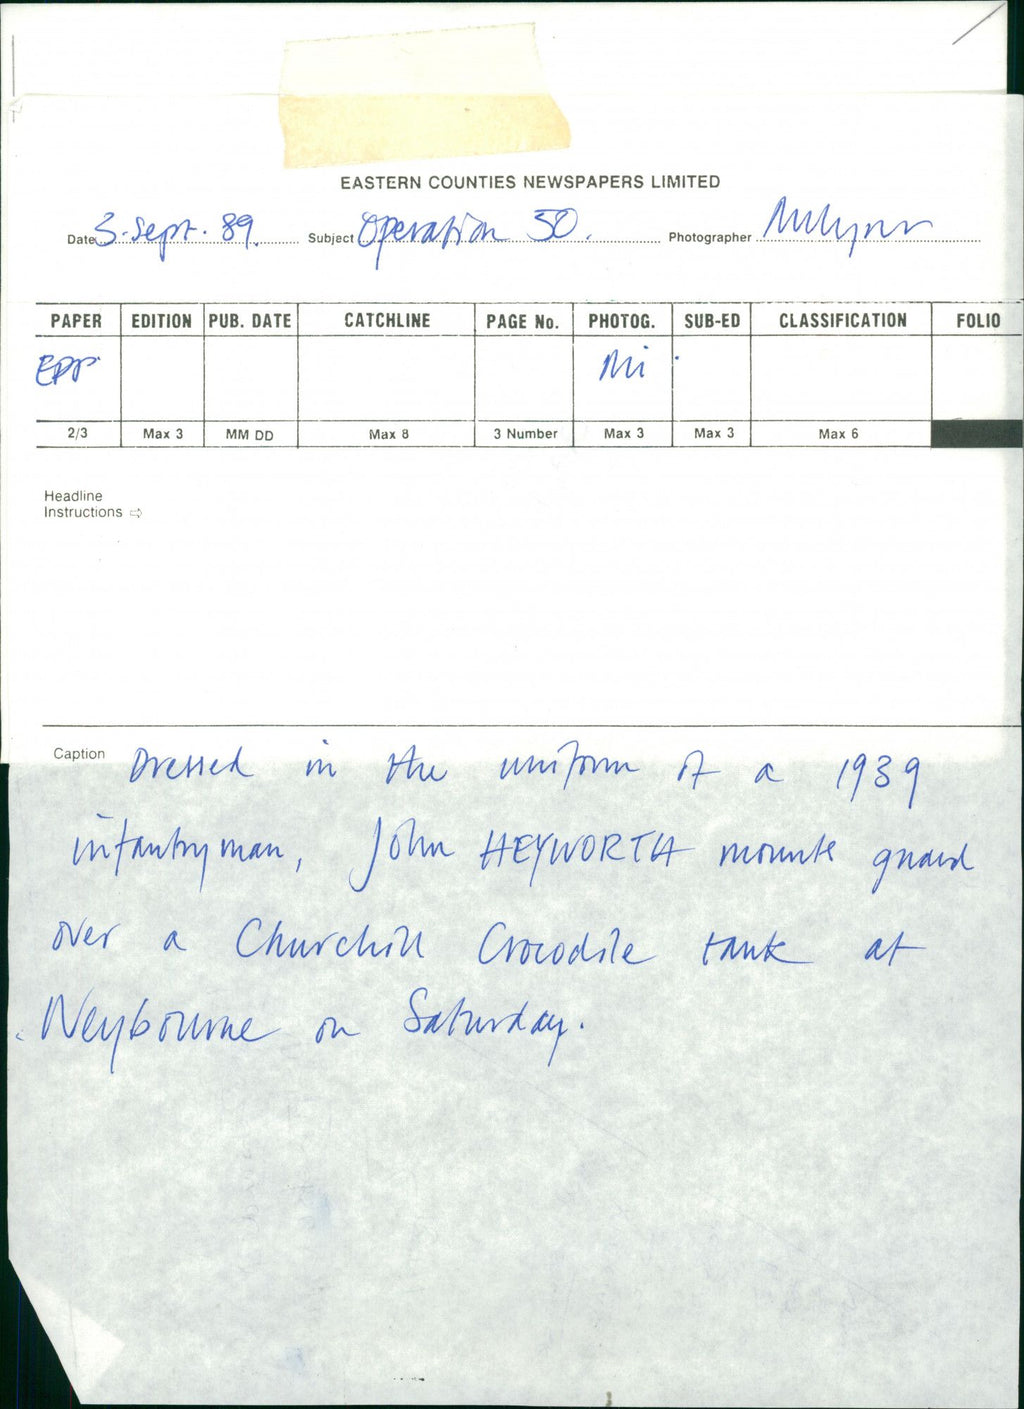 EASTERN COUNTIES NEWSPAPERS LIMITED
Date 3. Sept. 89. Subject Operation 50. Photographer
PAPER EDITION PUB. DATE CATCHLINE PAGE No. PHOTOG. SUB-ED CLASSIFICATION FOLIO
2/3 Max 3 MM DD Max 8 3 Number Max 3 Max 3 Max 6
Headline
Instructions ⇨
Caption Dressed in the uniform of a 1939
infantryman, John HEYWORTH mounts guard
over a Churchill Crocodile tank at
Weybourne on Saturday.